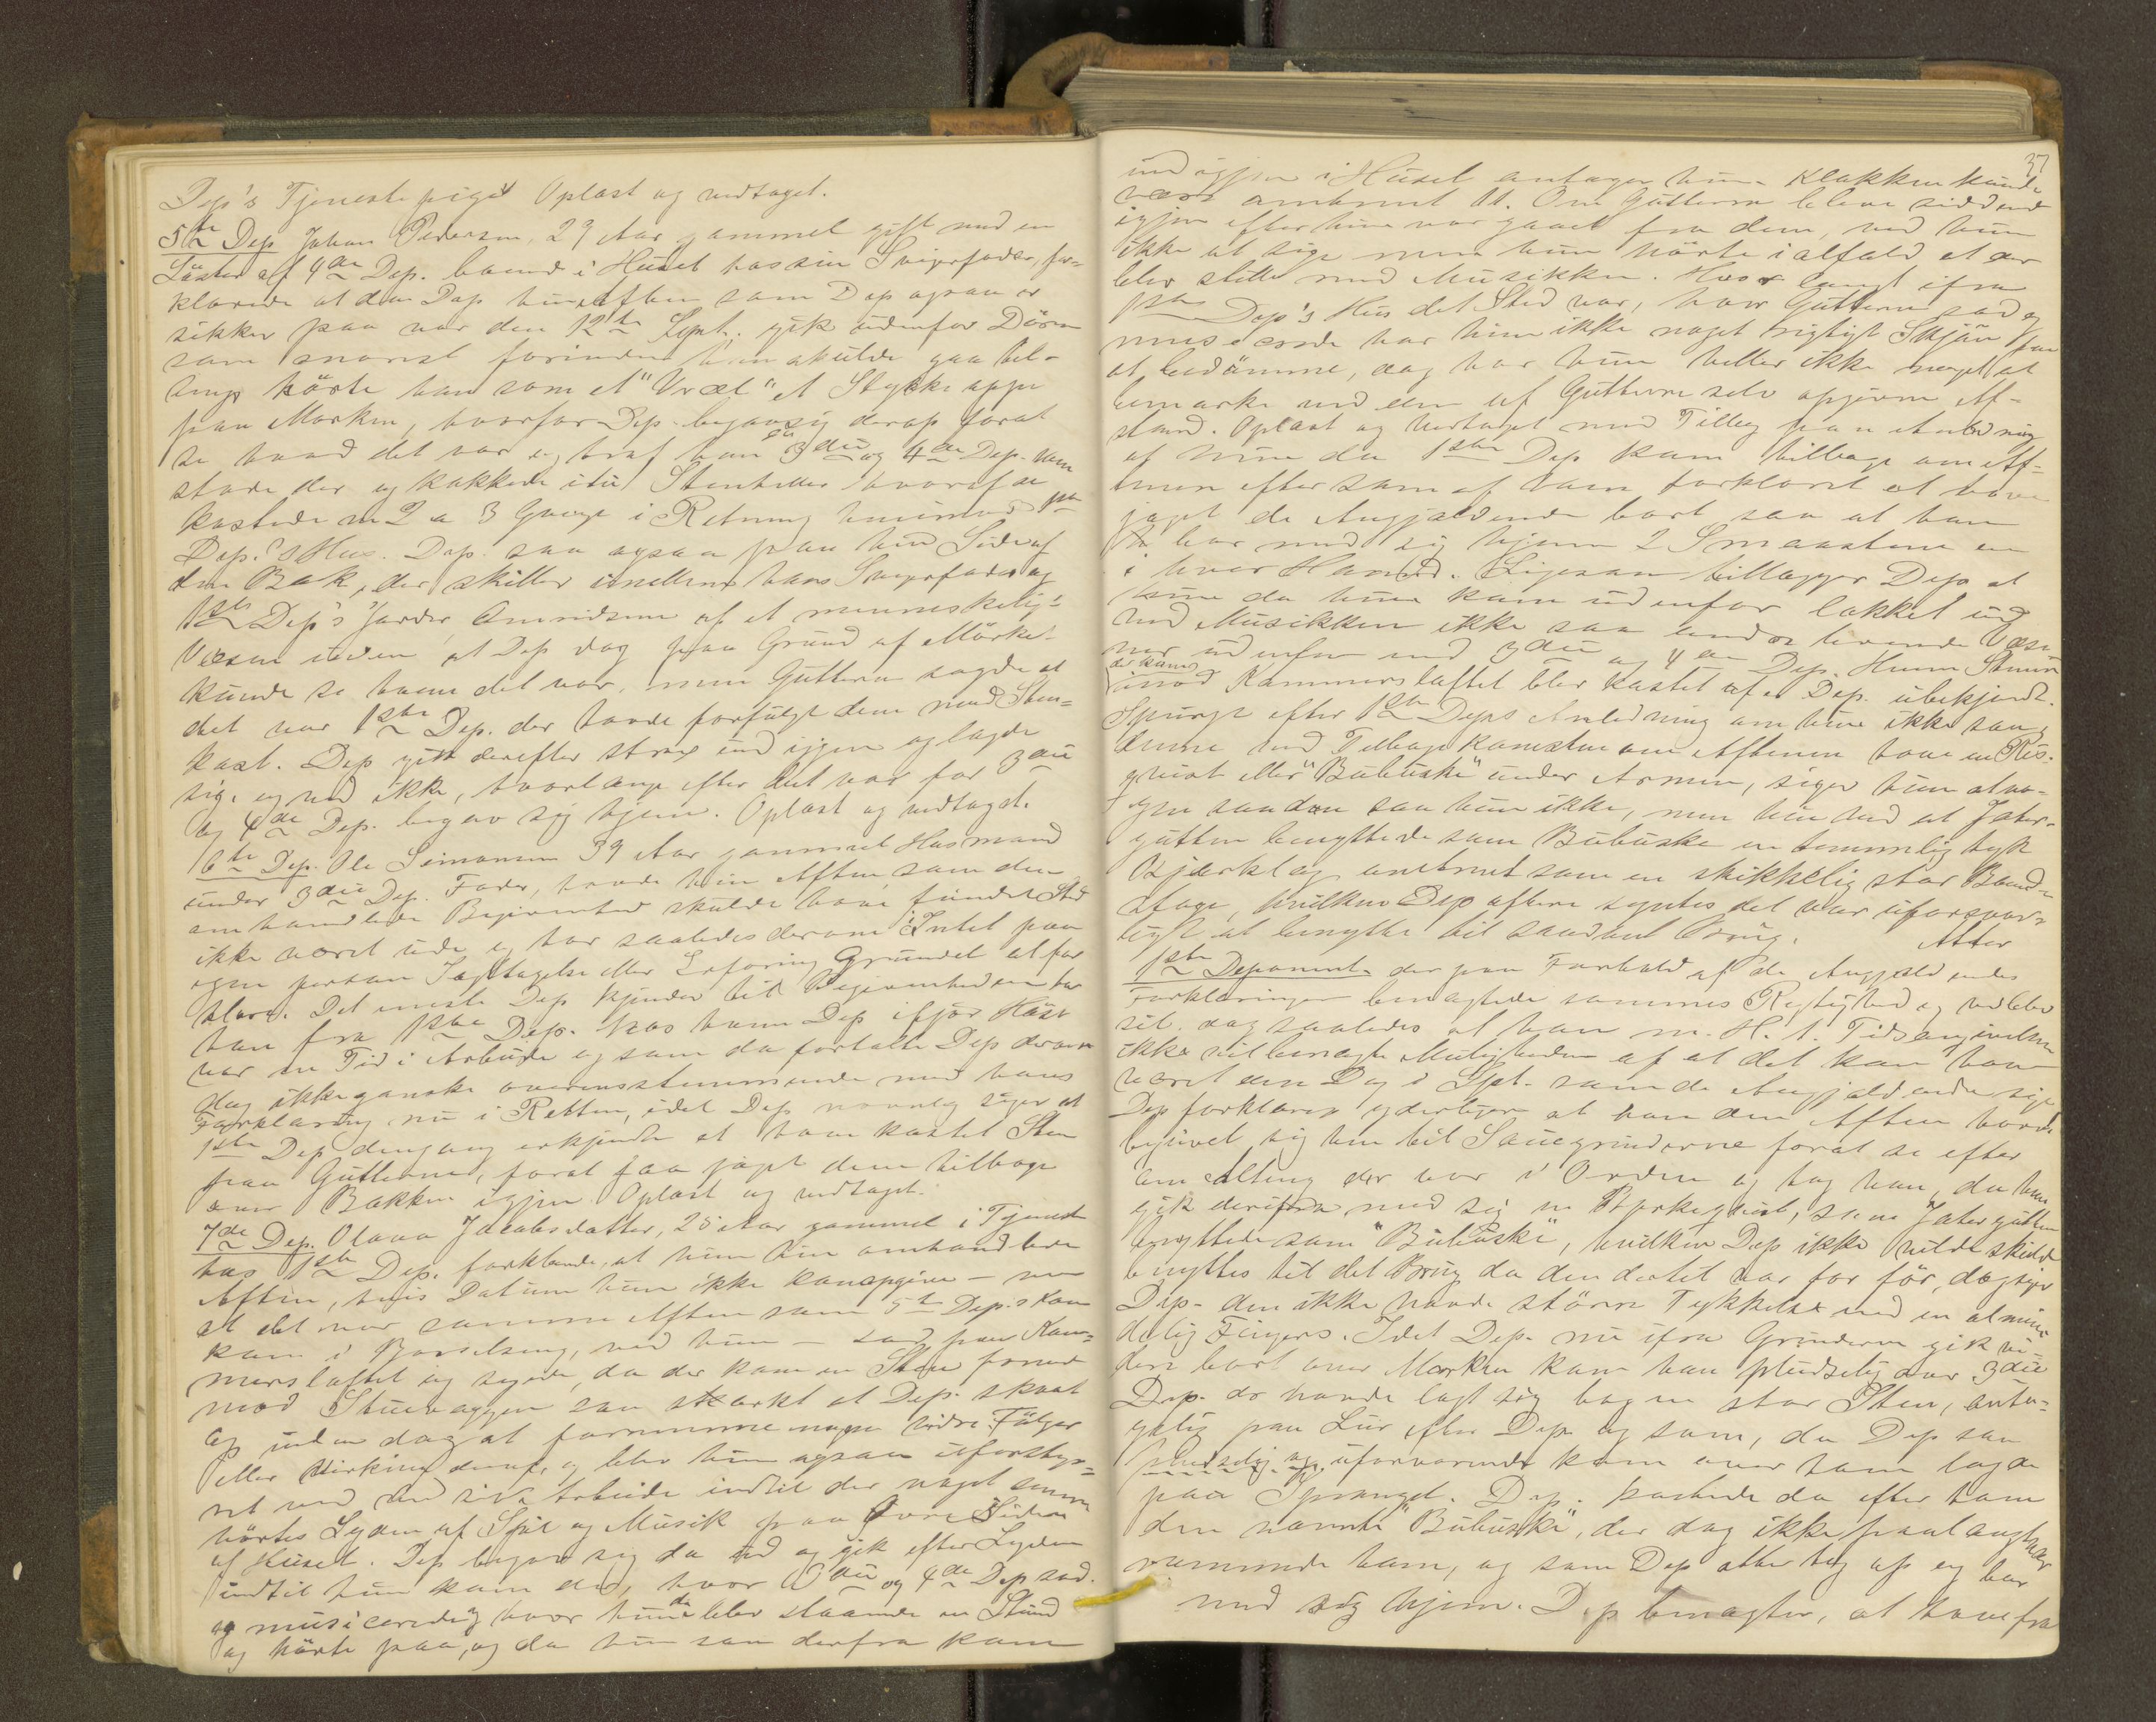 Dep's Tjenestepiget Oplæst og vedtaget.
5te Dep Johan Pedersen, 29 Aar gammel gift med en
Søster af 4de Dep. boende i Huset hos sin Svigerfader, for-
klarede at den Dep hin Aften som Dep ogsaa er
sikker paa var den 12te Sept. gik udenfor Døren
som snarest forinden han skulde gaa til-
sengs hørte han som et "Vræl" et Stykke oppe
paa Marken, hvorfor Dep. begav sig derop forat
se hvad det var og traf han da 3die og 4de Dep. som
stode der og kakkede itu Stenheller hvoraf de
kastede en 2 a 3 Gange i Retning henimod 1ste
Dep.'s Hus. Dep. saa ogsaa paa hin Side af
den Bæk, der skiller imellem hans Svigerfaders og
1ste Dep's Jorder Omridsene af et menneskelig-
Væsen uden at Dep dog paa Grund af Mørket
kunde se hvem det var, men Gutterne sagde at
det var 1ste Dep. der havde forfulgt dem med Sten-
kast. Dep gik derefter strax ind igjen og lagde
sig, og ved ikke, hvorlænge efter det var før 3die
og 4de Dep. begav sig hjem. Oplæst og vedtaget.
6te Dep. Ole Simonsen 39 Aar gammel Husmand
under 3die Dep. Fader, havde hin Aften, som den
omhandlede Begivenhed skulde have fundet Sted
ikke været ude og har saaledes derom Intet paa
egen person Iagttagelse eller Erfaring Grundet at for
klare. Det eneste Dep kjender til Begivenheden har
han fra 1ste Dep. hos hvem Dep ifjor Høst
var en Tid i Arbeide og som da fortalte Dep derom
dog ikke ganske overensstemmende med hans
Forklaring nu i Retten, idet Dep navnlig siger at
1ste Dep dengang erkjendte at have kastet Sten
paa Gutterne, forat faa jaget dem tilbage
over Bækken igjen. Oplæst og vedtaget.
7de Dep. Olava Jacobsdatter, 25 Aar gammel i Tjeneste
hos 1ste Dep. forklarede, at hun hin omhandlede
Aften, hvis Datum hun ikke kan opgive – men
at det var samme Aften som 5te Dep.s Kone
kom i Barselseng, ved hun – sad paa Kam-
mersloftet og syede, da der kom en Sten farende
mod Stuevæggen saa stærkt at Dep. skvat
op uden dog at fornemme nogen videre Følger
eller Virkning deraf, og blev hun ogsaa uforstyr-
ret ved sit Arbeide indtil der noget senere
hørtes Lyden af Spil og Musik paa Øvre Siden
af Huset. Dep begav sig da ud og gik efter Lyden
indtil hun kom did, hvor 3die og 4de Dep sad
og musicerede og hvor hun da blev staaende en Stund
og hørte paa, og da hun saa derfra kom
37
ind igjen i Huset antager hun Klokken kunde
være omtrent 11. Om Gutterne bleve siddende
igjen efter hun var gaaet fra dem, ved hun
ikke at sige men hun hørte ialfald at der
blev stille med Musikken. Hvor langt ifra
1ste Dep's Hus det Sted var, hvor Gutterne sad og
musicerede har hun ikke noget rigtigt Skjøn paa
at bedømme, dog har hun heller ikke noget at
bemærke ved den af Gutterne selv opgivne Af-
stand. Oplæst og Vedtaget med Tillæg paa Anledning
af hun da 1ste Dep kom tilbage om Aft-
enen efter som af ham forklaret at have
jaget de Angjældende bort saa at han
bar med sig hjem 2 Smaastene en
i hver Haand. Ligesom tillægger Dep at
hun da hun kom udenfor lokket ud
ved Musikken ikke saa andre levende Væsen
ner udenfor end 3die og 4de Dep. Hvem Stenen
der kom imod Kammersloftet blev kastet af er Dep. ubekjendt.
Spurgt efter 1ste Deps Anledning om hun ikke saa
denne ved Tilbagekomsten om Aftenen have en Ris-
qvist eller "Bubuske" under Armen, siger hun at no-
gen saadan saa hun ikke, men hun ved at Jæter-
gutten benyttede som Bubuske en temmelig tyk
Bjerkelag omtrent som en skikkelig stor Baand-
stage, hvilken Dep oftere syntes det var uforsvar-
ligt at benytte til saadant Brug. Atter
1ste Deponent der paa Forhold af de Angjældendes
Forklaringer benægtede sammes Rigtighed og vedblev
sit. dog saaledes at han m. H. t. Tidsangivelsen
ikke vil benægte Muligheden af at det kan have
været den Dag i Spt. som de Angjældende sige
Dep forklarer yderligere at han den Aften havde
begivet sig hen til Sauegrinderne forat se efter
om Alting der var i Orden og tog han, da han
gik derifra med sig en Birkeqvist, som Jætergutten
benyttede som "Bubuske", hvilken Dep ikke vilde skulde
benyttes til det Brug da den dertil var for før, dog siger
Dep. den ikke havde større Tykkelse end en almin-
delig Fingers. Idet Dep. nu ifra Grinderne gik vi-
dere bort over Marken kom han pludselig over 3die
Dep. der havde lagt sig bag en stor Sten, antage-
gelig paa Lur efter Dep og som, da Dep saa
pludselig og uforvarende kom over ham lagde
paa Sprangt. Dep. kastede da efter ham
den nævnte "Bubuske", der dog ikke paalangt nær
rammede ham, og som Dep atter tog op og bar
med sig hjem. Dep benægter, at have fra